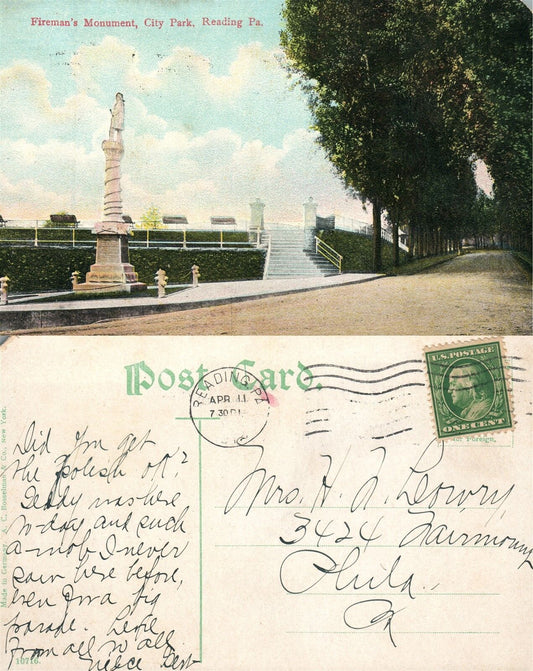 Fireman's Monument, City Park, Reading Pa.
Post Card.
READING, PA.
APR 11
7 30 P
U.S. POSTAGE
ONE CENT
Foreign.
Made in Germany. A. C. Bosselman & Co., New York.
Did you get
the polish ok?
Teddy was here
to-day, and such
a mob I never
saw here before,
even for a big
parade. Love
from all to all
Niece
10716.
Mrs. H. L. Lowry,
3424 Fairmount
Phila.
Pa